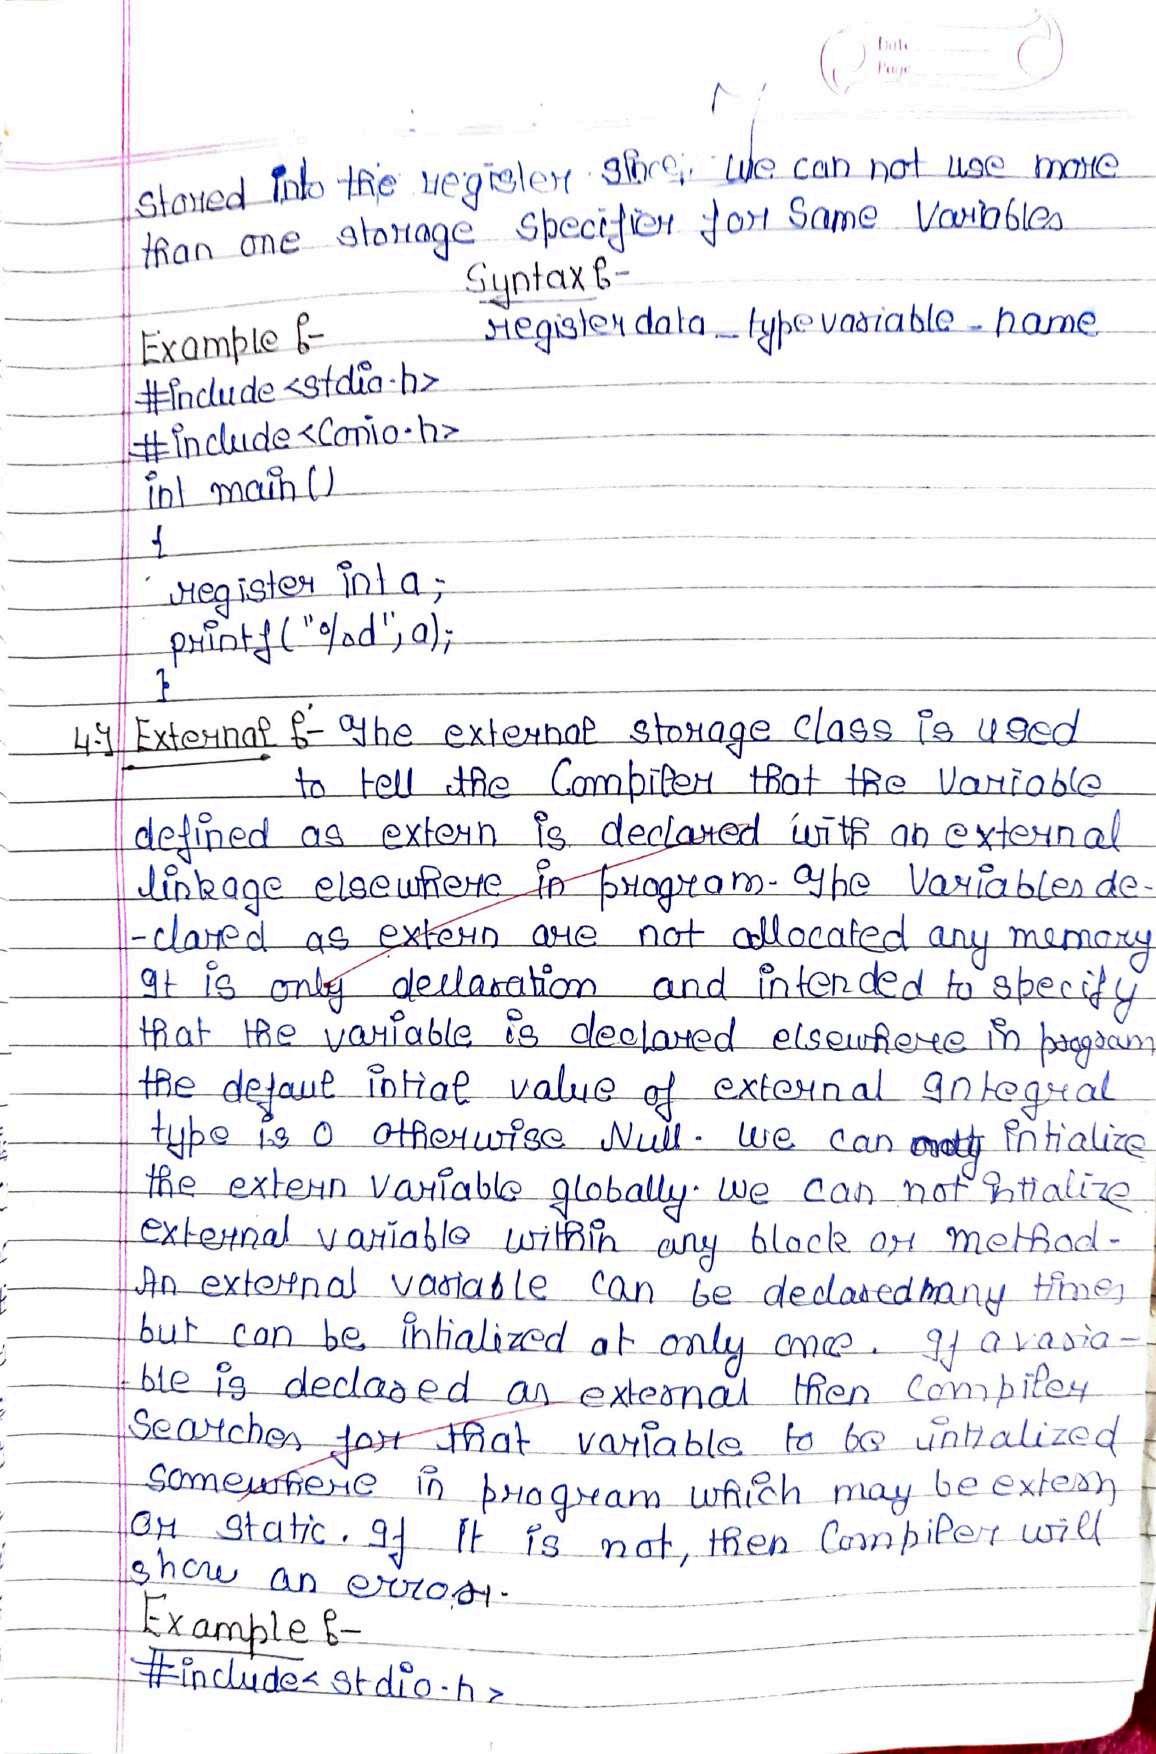 Date
Page
stored into the register since, we can not use more
than one storage specifier for same variables
Syntax :-
register data_type variable_name
Example :-
#include <stdio.h>
#include <Conio.h>
int main ()
{
register int a;
printf ("%d", a);
}
4.) External :- The external storage class is used
to tell the Compiler that the Variable
defined as extern is declared with an external
linkage elsewhere in program. The Variables de-
-clared as extern are not allocated any memory
It is only declaration and intended to specify
that the variable is declared elsewhere in program
the defaut intial value of external Integral
type is 0 otherwise Null. We can only intialize
the extern variable globally. we can not intialize
external variable within any block or method.
An external variable can be declared many times
but can be intialized at only once. If a varia-
ble is declared as external then compiler
searches for that variable to be intialized
somewhere in program which may be extern
or static. If It is not, then Compiler will
show an error.
Example :-
#include< stdio.h >